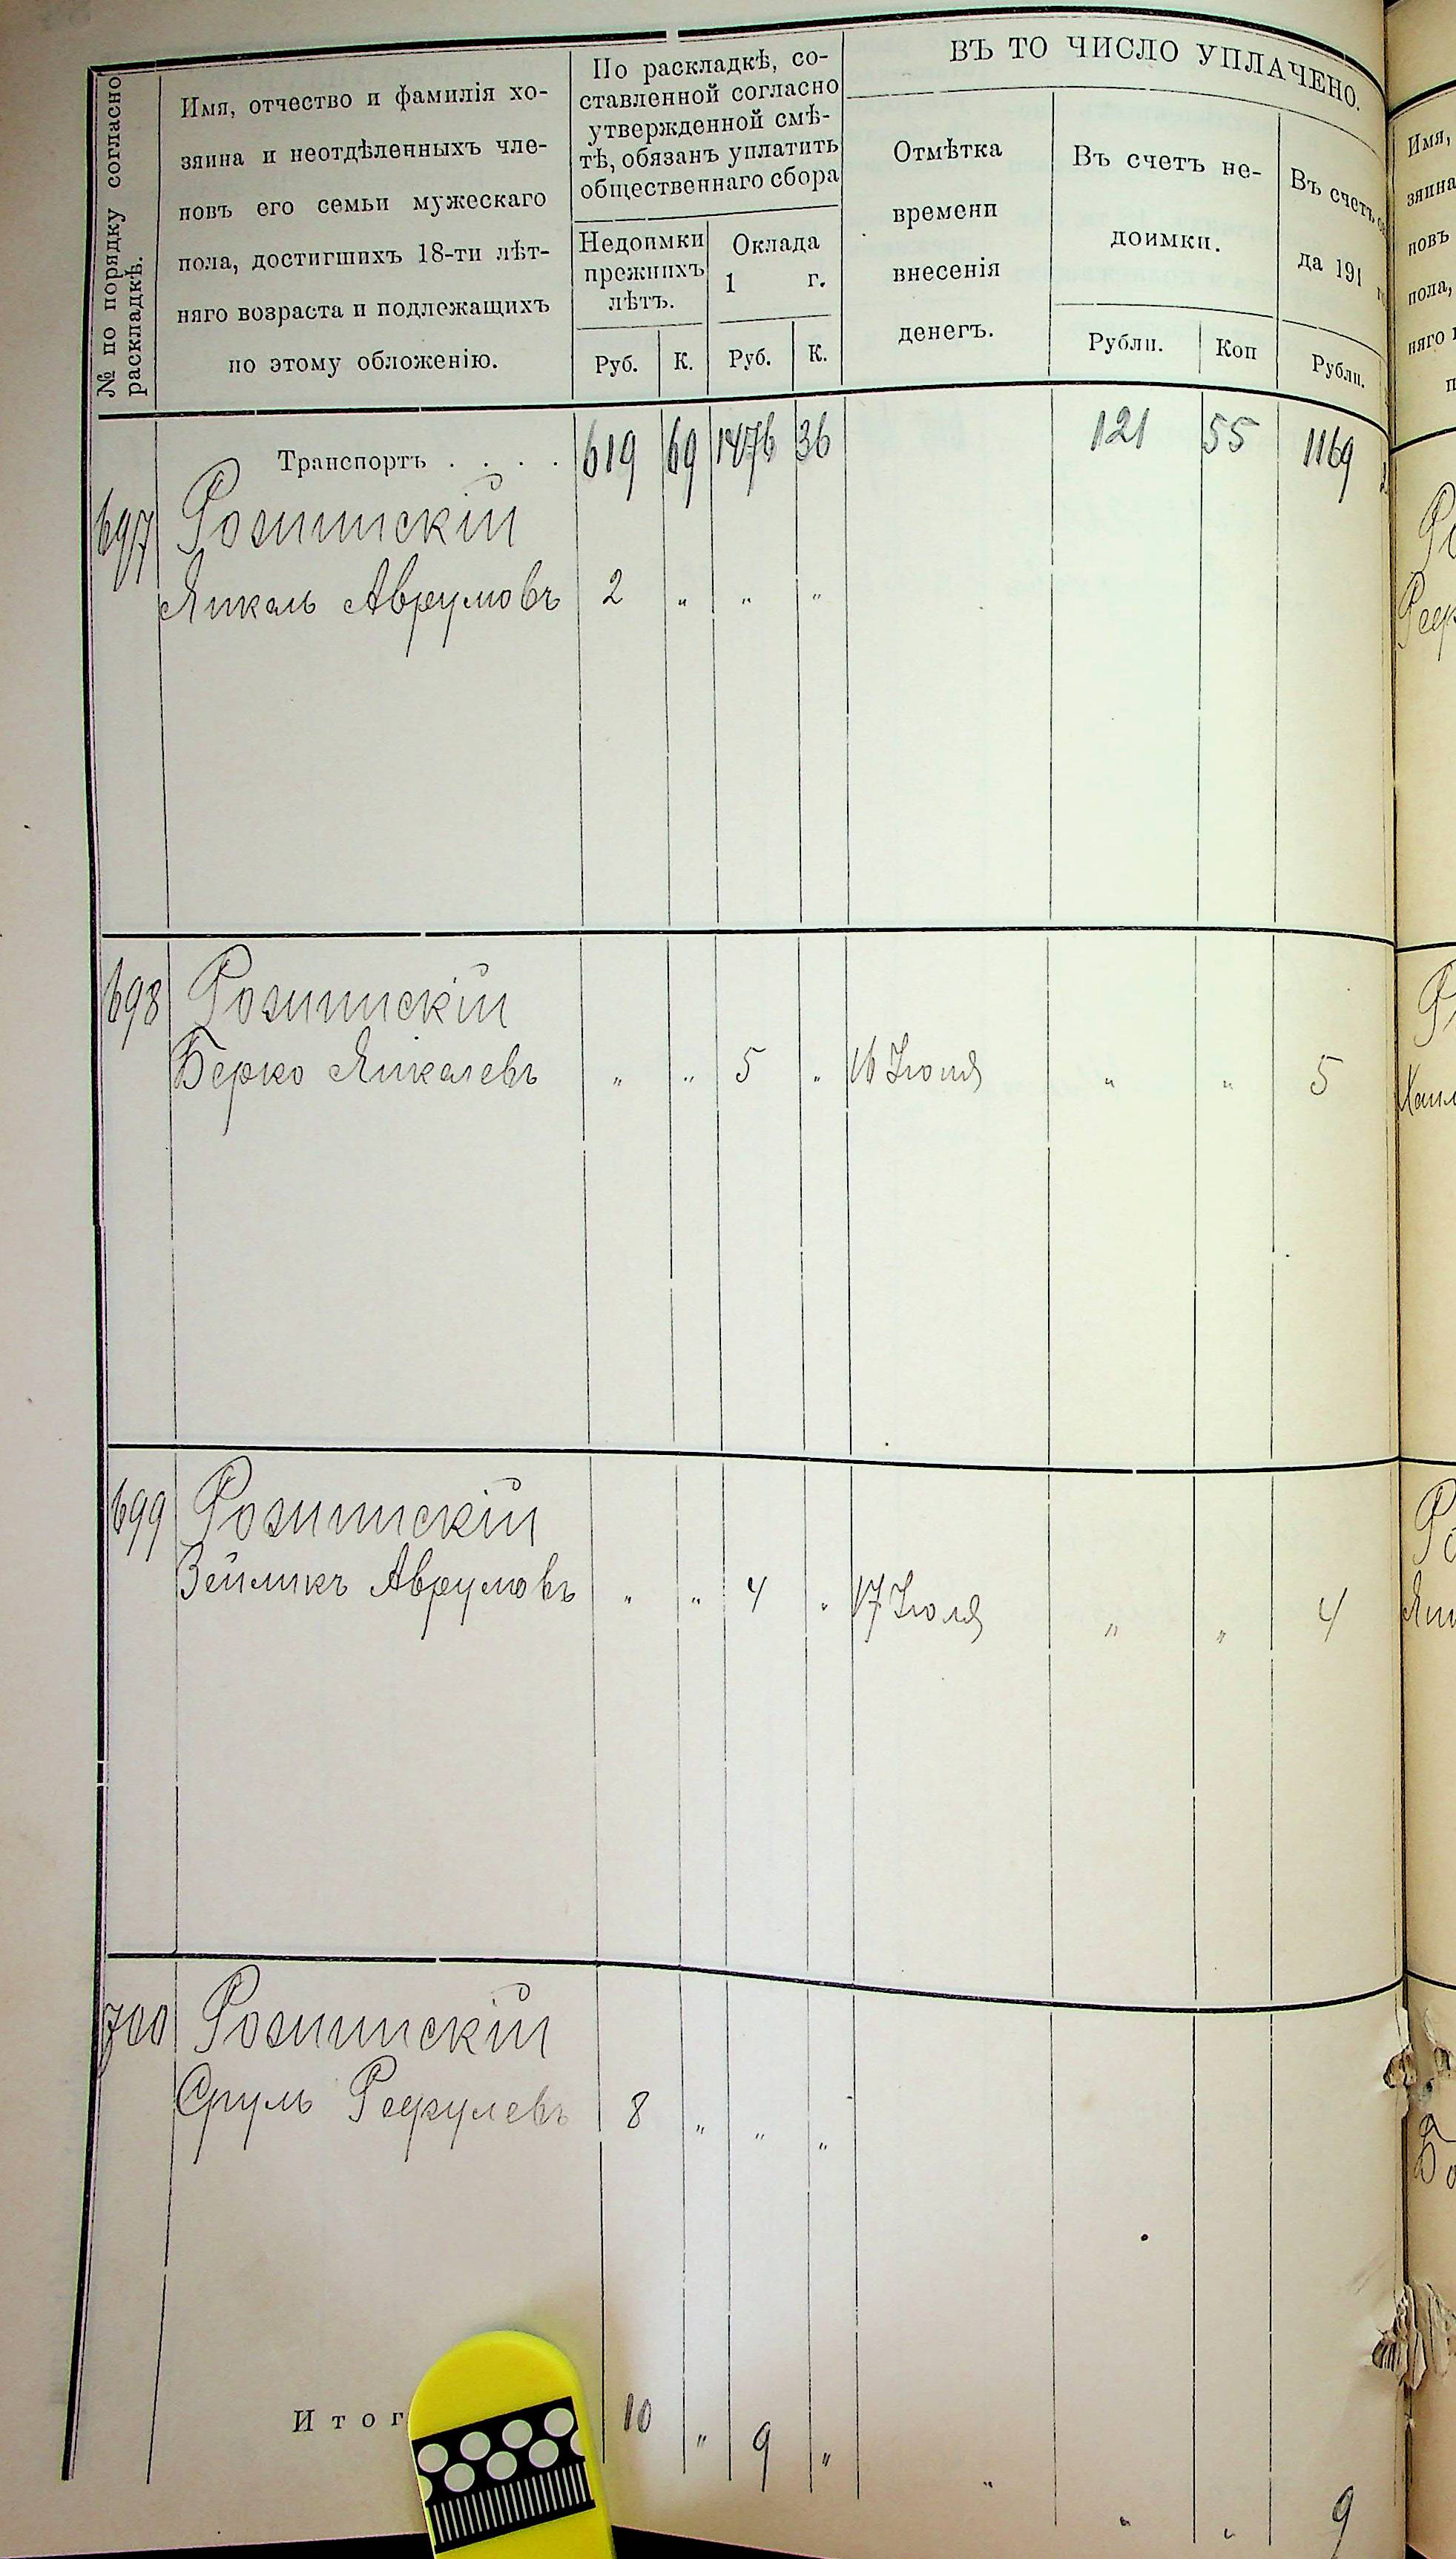 № по порядку согласно
раскладкѣ.
Имя, отчество и фамилія хо-
зяина и неотдѣленныхъ чле-
новъ его семьи мужескаго
пола, достигшихъ 18-ти лѣт-
няго возраста и подлежащихъ
по этому обложенію.
По раскладкѣ, со-
ставленной согласно
утвержденной смѣ-
тѣ, обязанъ уплатить
общественнаго сбора
Недоимки
прежнихъ
лѣтъ.
Оклада
1 г.
Руб. К. Руб. К.
ВЪ ТО ЧИСЛО УПЛАЧЕНО.
Отмѣтка
времени
внесенія
денегъ.
Въ счетъ не-
доимки.
Рубли. Коп
Въ счетъ
да 191
Рубли.
Транспортъ . . . . 619 69 1476 36 121 55 1169
697 Розинскій
Янкель Аврумовъ 2 " " "
698 Розинскій
Берко Янкелевъ " " 5 " 16 Іюля " " 5
699 Розинскій
Зейликъ Аврумовъ " " 4 " 17 Іюля " " 4
700 Розинскій
Сруль Рефулевъ 8 " " "
Итог 10 " 9 " " " " 9
Имя,
зяина
новъ
пола,
няго